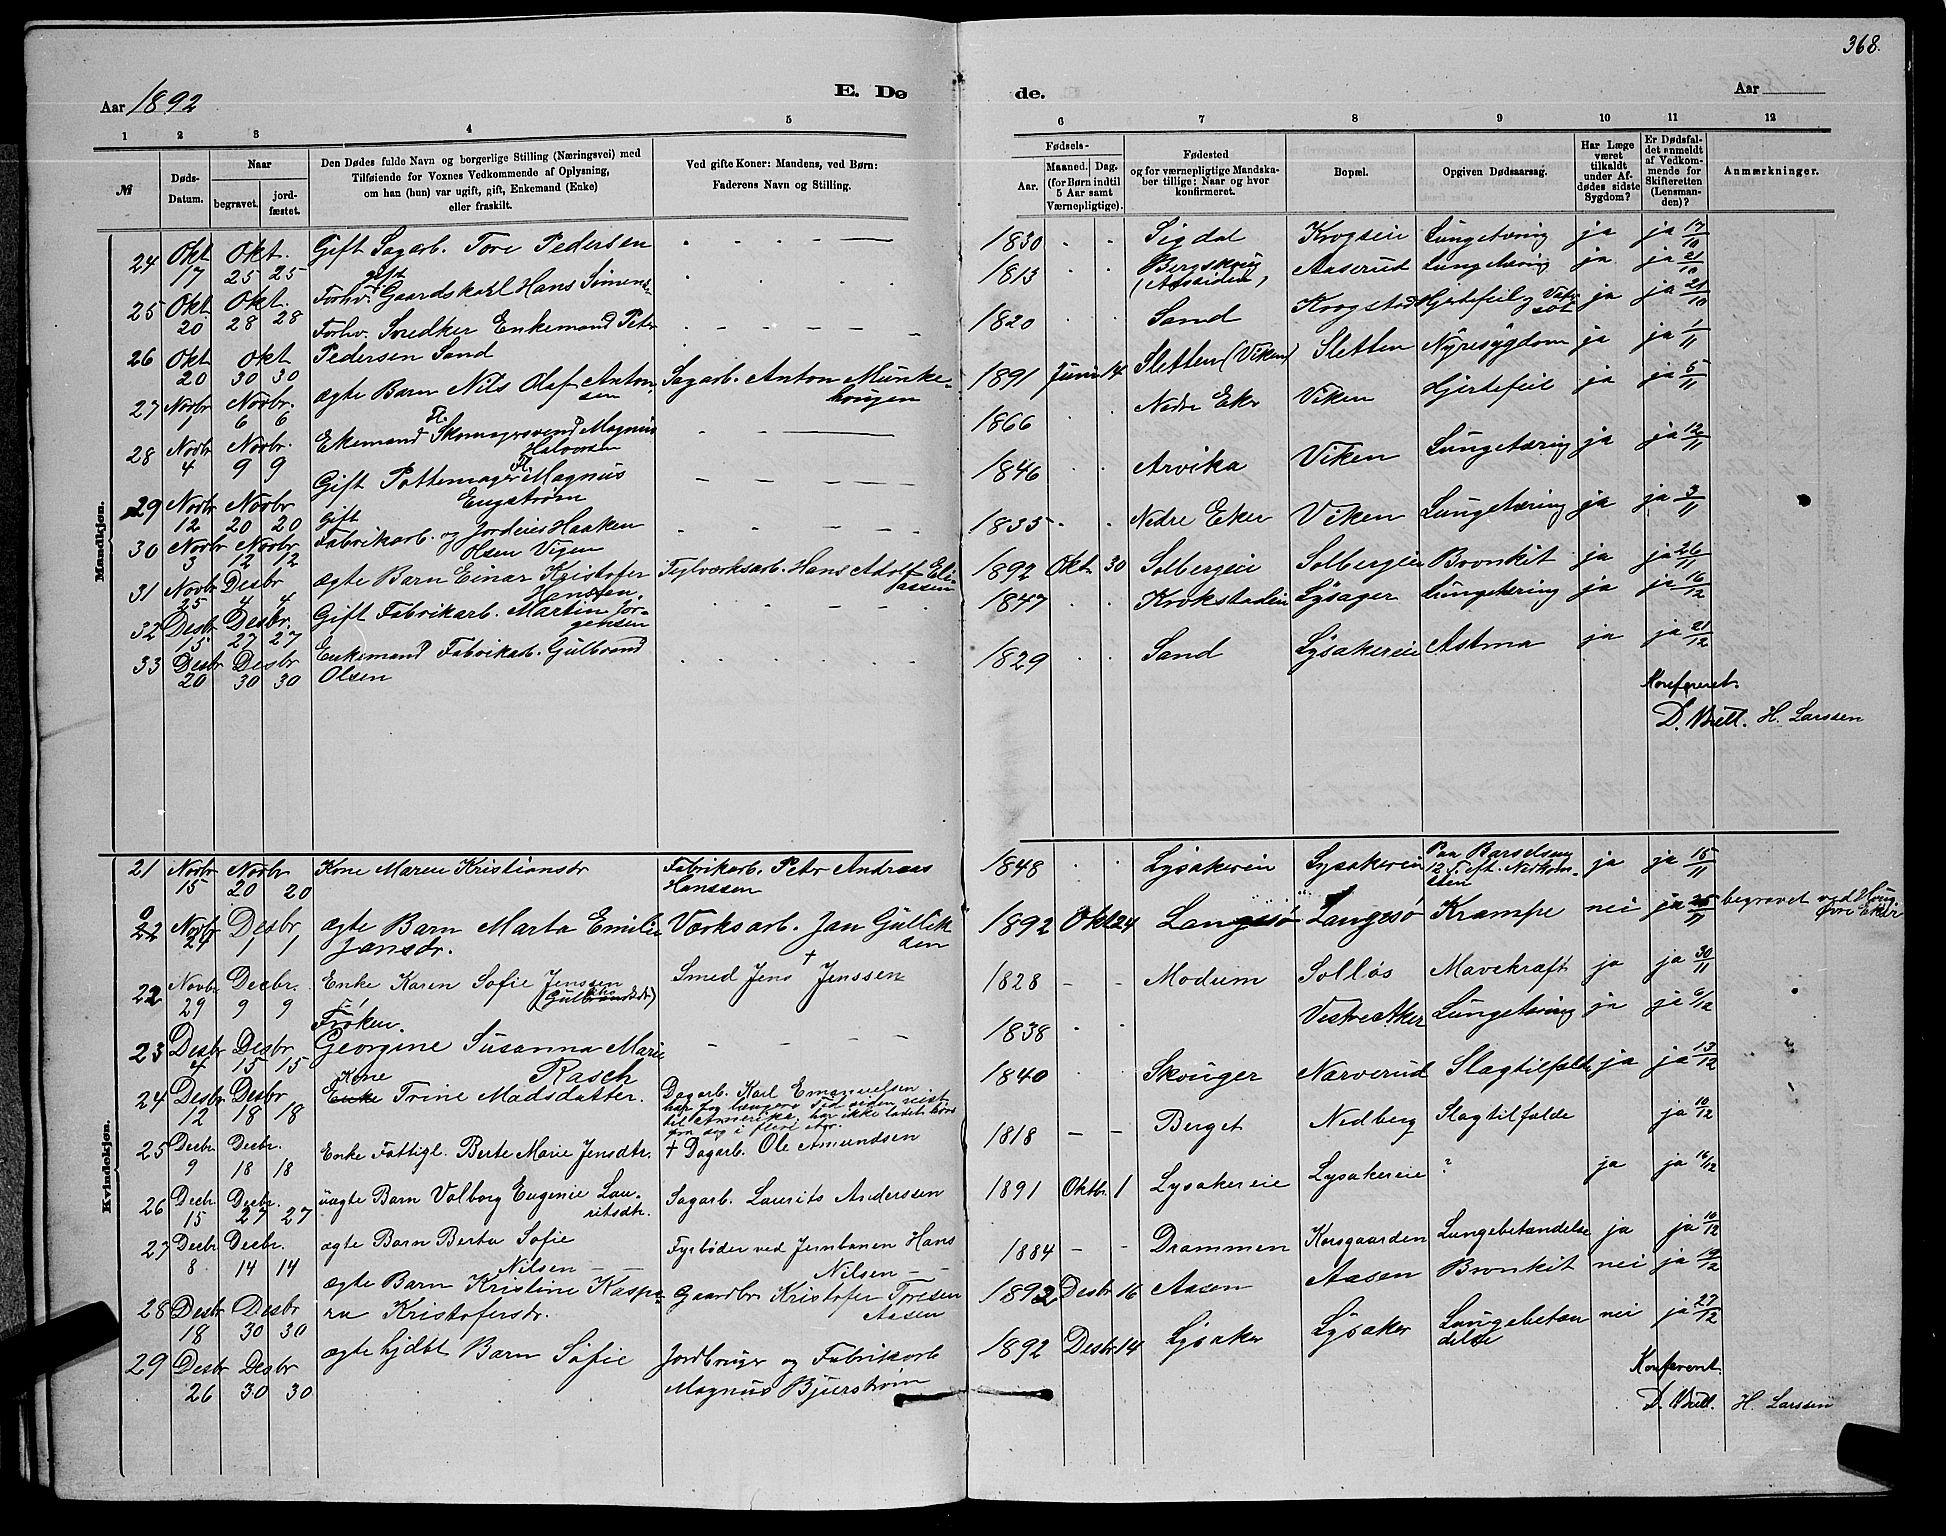 368.
Aar 1892
E. Dø
de.
Aar
1 2 3 4 5
6 7 8 9 10 11 12
№
Døds-
Datum.
Naar
begravet.
jord-
fæstet.
Den Dødes fulde Navn og borgerlige Stilling (Næringsvei) med
Tilføiende for Voxnes Vedkommende af Oplysning,
om han (hun) var ugift, gift, Enkemand (Enke)
eller fraskilt.
Ved gifte Koner: Mandens, ved Børn:
Faderens Navn og Stilling.
Fødsels-
Aar.
Maaned. Dag.
(for Børn indtil
5 Aar samt
Værnepligtige).
Fødested
og for værnepligtige Mandska-
ber tillige: Naar og hvor
konfirmeret.
Bopæl.
Opgiven Dødsaarsag.
Har Læge
været
tilkaldt
under Af-
dødes sidste
Sygdom?
Er Dødsfal-
det anmeldt
af Vedkom-
mende for
Skifteretten
(Lensman-
den)?
Anmærkninger.
Mandkjøn.
24 Okt 17 Okt. 25 25 Gift Sagarb. Tore Pedersen 1830 Sigdal Krogseie Lungetæring ja ja 17/10
25 Okt. 20 Okt. 28 28 Forhv. gift Gaardskarl Hans Simens. 1813 Bergskoug (Assiden) Aaserud Lungetæring ja ja 21/10
26 Okt 20 Okt 30 30 Forhv. Snedker Enkemand Peter
Pedersen Sand 1820 Sand Krogstad Hjertefeil og Vatersot ja ja 21/10
27 Novbr 1 Novbr. 6 6 ægte Barn Nils Olaf Anton-
sen Sagarb. Anton Munke-
hougen 1891 Juni 14 Sletten (Viken) Sletten Nyresygdom ja ja 1/11
28 Novbr 4 Novbr. 9 9 Ekemand Fl. Skomagersvend Magnus
Halvorsen 1866 Nedre Eker Viken Hjertefeil ja ja 5/11
29 Novbr 12 Novbr 20 20 Gift Pottemager Fl. Magnus
Engstrøm 1846 Arvika Viken Lungetæring ja ja 12/11
30 Novbr 3 Novbr 12 12 Gift
Fabrikarb. og Jordeier Haaken
Olsen Vigen 1835 Nedre Eker Viken Lungetæring ja ja 3/11
31 Novbr 25 Desbr 4 4 ægte Barn Einar Kristofer
Hansen. Teglværksarb. Hans Adolf Eli-
assen 1892 Okt. 30 Solbergeie Solbergeie Bronkit ja ja 26/11
32 Desbr 15 Desbr. 27 27 Gift Fabrikarb. Martin Jør-
gensen 1847 Krokstadeie Lysager Lungetæring ja ja 16/12
33 Desbr 20 Desbr 30 30 Enkemand Fabrikarb. Gulbrand
Olsen 1829 Sand Lysakereie Astma ja ja 21/12
Konfereret.
H. Larssen
Kvindekjøn.
21 Novbr 15 Novbr 20 20 Kone Maren Kristiansdr Fabrikarb. Peter Andreas
Hanssen 1848 Lysakereie Lysakereie Paa Barselseng
12 T. eft. Nedkom-
sten ja ja 15/11
22 Novbr 24 Desbr. 1 1 ægte Barn Marta Emilie
Jansdr. Værksarb. Jan Gullik
sen 1892 Okt. 24 Langesø Langesø Krampe nei ja 25/11 begravet ved Houg.
Øvre Eker
22 Novbr 29 Decbr. 9 9 Enke Karen Sofie Jenssen Smed Jens † Jenssen 1828 Modum Solløs Mavekræft ja ja 30/11
23 Desbr 4 Desbr 15 15 Frøken.
Georgine Susanna Marie
Rasch 1838 Vestre Aker Lungetæring ja ja 6/12
24 Desbr 12 Desbr 18 18 Kone
Enke Trine Madsdatter. Dagarb. Karl Emanuelsen
har for længere Tid siden reist
til Amerika, har ikke ladet høre
fra sig i flere Aar. 1840 Skouger Narverud Slagtilfælde ja ja 13/12
25 Decbr. 9 Decbr. 18 18 Enke Fattigl. Berte Marie Jensdtr. † Dagarb. Ole Amundsen 1818 Berget Nedberg Slagtilfælde ja 10/12
26 Decbr. 15 Decbr. 27 27 uægte Barn Valborg Eugenie Lau-
ritsdtr. Sagarb. Laurits Anderssen 1891 Oktbr. 1 Lysakereie Lysakereie ? ja ja 16/12
27 Decbr. 8 Decbr. 14 14 ægte Barn Berta Sofie
Nilsen Fyrbøder ved Jernbanen Hans
Nilsen 1884 Drammen Korsgaarden Lungebetændelse ja ja 10/12
28 Desbr 18 Desbr 30 30 ægte Barn Kristine Kaspa-
ra Kristofersdr. Gaardbr. Kristofer Toresen
Aasen 1892 Desbr 16 Aasen Aasen Bronkit nei ja 19/12
29 Desbr 26 Desbr 30 30 ægte hjdbt Barn Sofie Jordbruger og Fabrikarb
Magnus Bjurstrøm 1892 Desbr. 14 Lysaker Lysaker Lungebetæn
delse nei ja 27/12
Konfereret.
H. Larssen